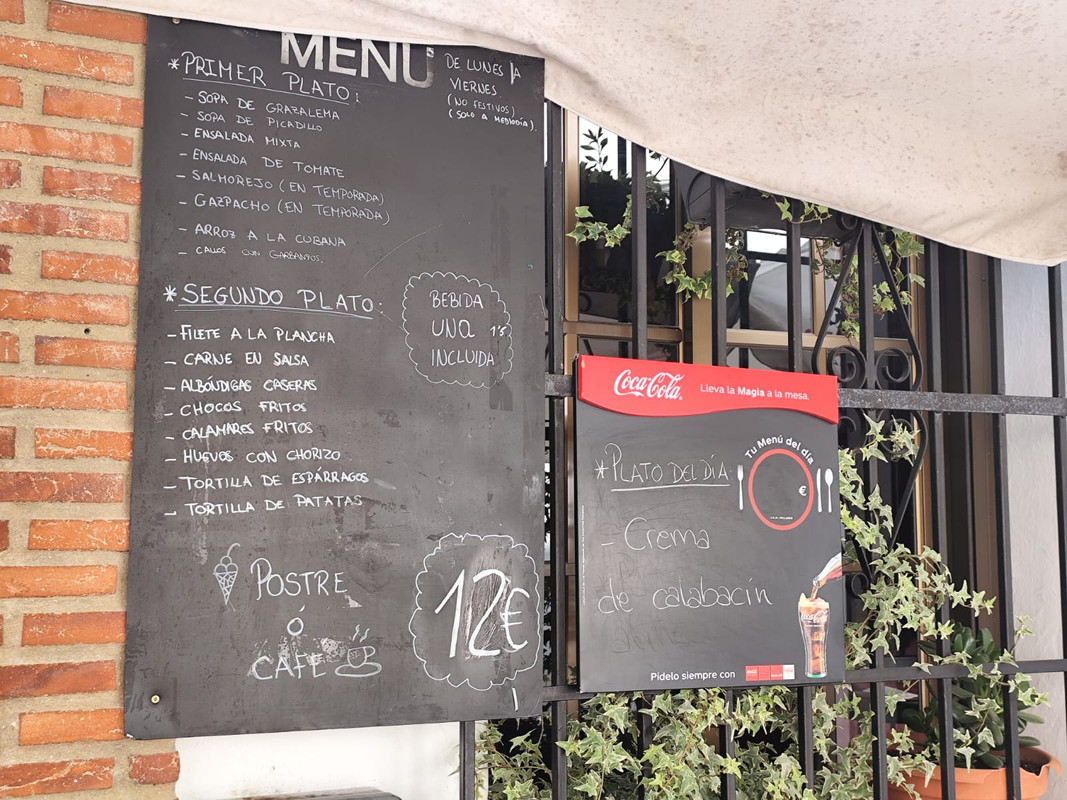 MENÚ
DE LUNES A
VIERNES
(NO FESTIVOS)
(SOLO A MEDIODÍA).
*PRIMER PLATO:
- SOPA DE GRAZALEMA
- SOPA DE PICADILLO
- ENSALADA MIXTA
- ENSALADA DE TOMATE
- SALMOREJO (EN TEMPORADA)
- GAZPACHO (EN TEMPORADA)
- ARROZ A LA CUBANA
- CALLOS CON GARBANZOS.
*SEGUNDO PLATO:
- FILETE A LA PLANCHA
- CARNE EN SALSA
- ALBÓNDIGAS CASERAS
- CHOCOS FRITOS
- CALAMARES FRITOS
- HUEVOS CON CHORIZO
- TORTILLA DE ESPÁRRAGOS
- TORTILLA DE PATATAS
BEBIDA
UNA 1'5
INCLUIDA
POSTRE
Ó
CAFE
12€
Coca-Cola
Lleva la Magia a la mesa.
Tu Menú del día
€
*PLATO DEL DÍA:
- Crema
de calabacín
Pídelo siempre con